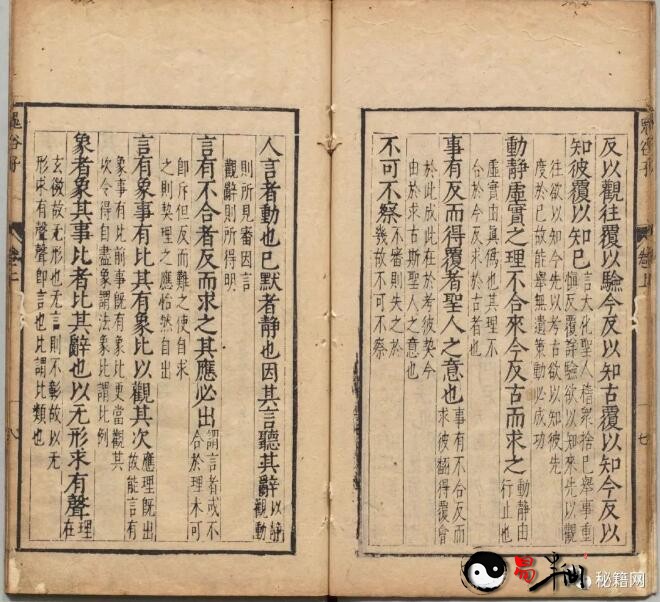 鬼谷子
卷上
七
反以觀往覆以驗今反以知古覆以知今反以
知彼覆以知巳
言大化聖人稽衆捨巳舉事重
愼反覆詳驗欲以知來先以觀
往欲以知今先以考古欲以知彼先
度於巳故能舉無遺策動必成功
動靜虛實之理不合來今反古而求之
動靜由
行止也
虛實由真僞也其理不
合於今反求於古者也
事有反而得覆者聖人之意也
事有不合反而
求彼翻得覆會
於此成此在於考彼契今
由於求古斯聖人之意也
不可不察
不審則失之於
幾故不可不察
人言者動也巳默者静也因其言聽其辭
以静
觀動
則所見審因言
觀辭則所得明
言有不合者反而求之其應必出
謂言者或不
合於理未可
即斥但反而難之使自求
之則契理之應怡然自出
言有象事有比其有象比以觀其次
應理既出
故能言有
象事有比前事既有象比更當觀其
次令得自盡象謂法象比謂比例
象者象其事比者比其辭也以无形求有聲
理
在
玄微故无形也无言則不彰故以无
形求有聲聲即言也比謂比類也
鬼谷子
卷上
八
易
秘籍网